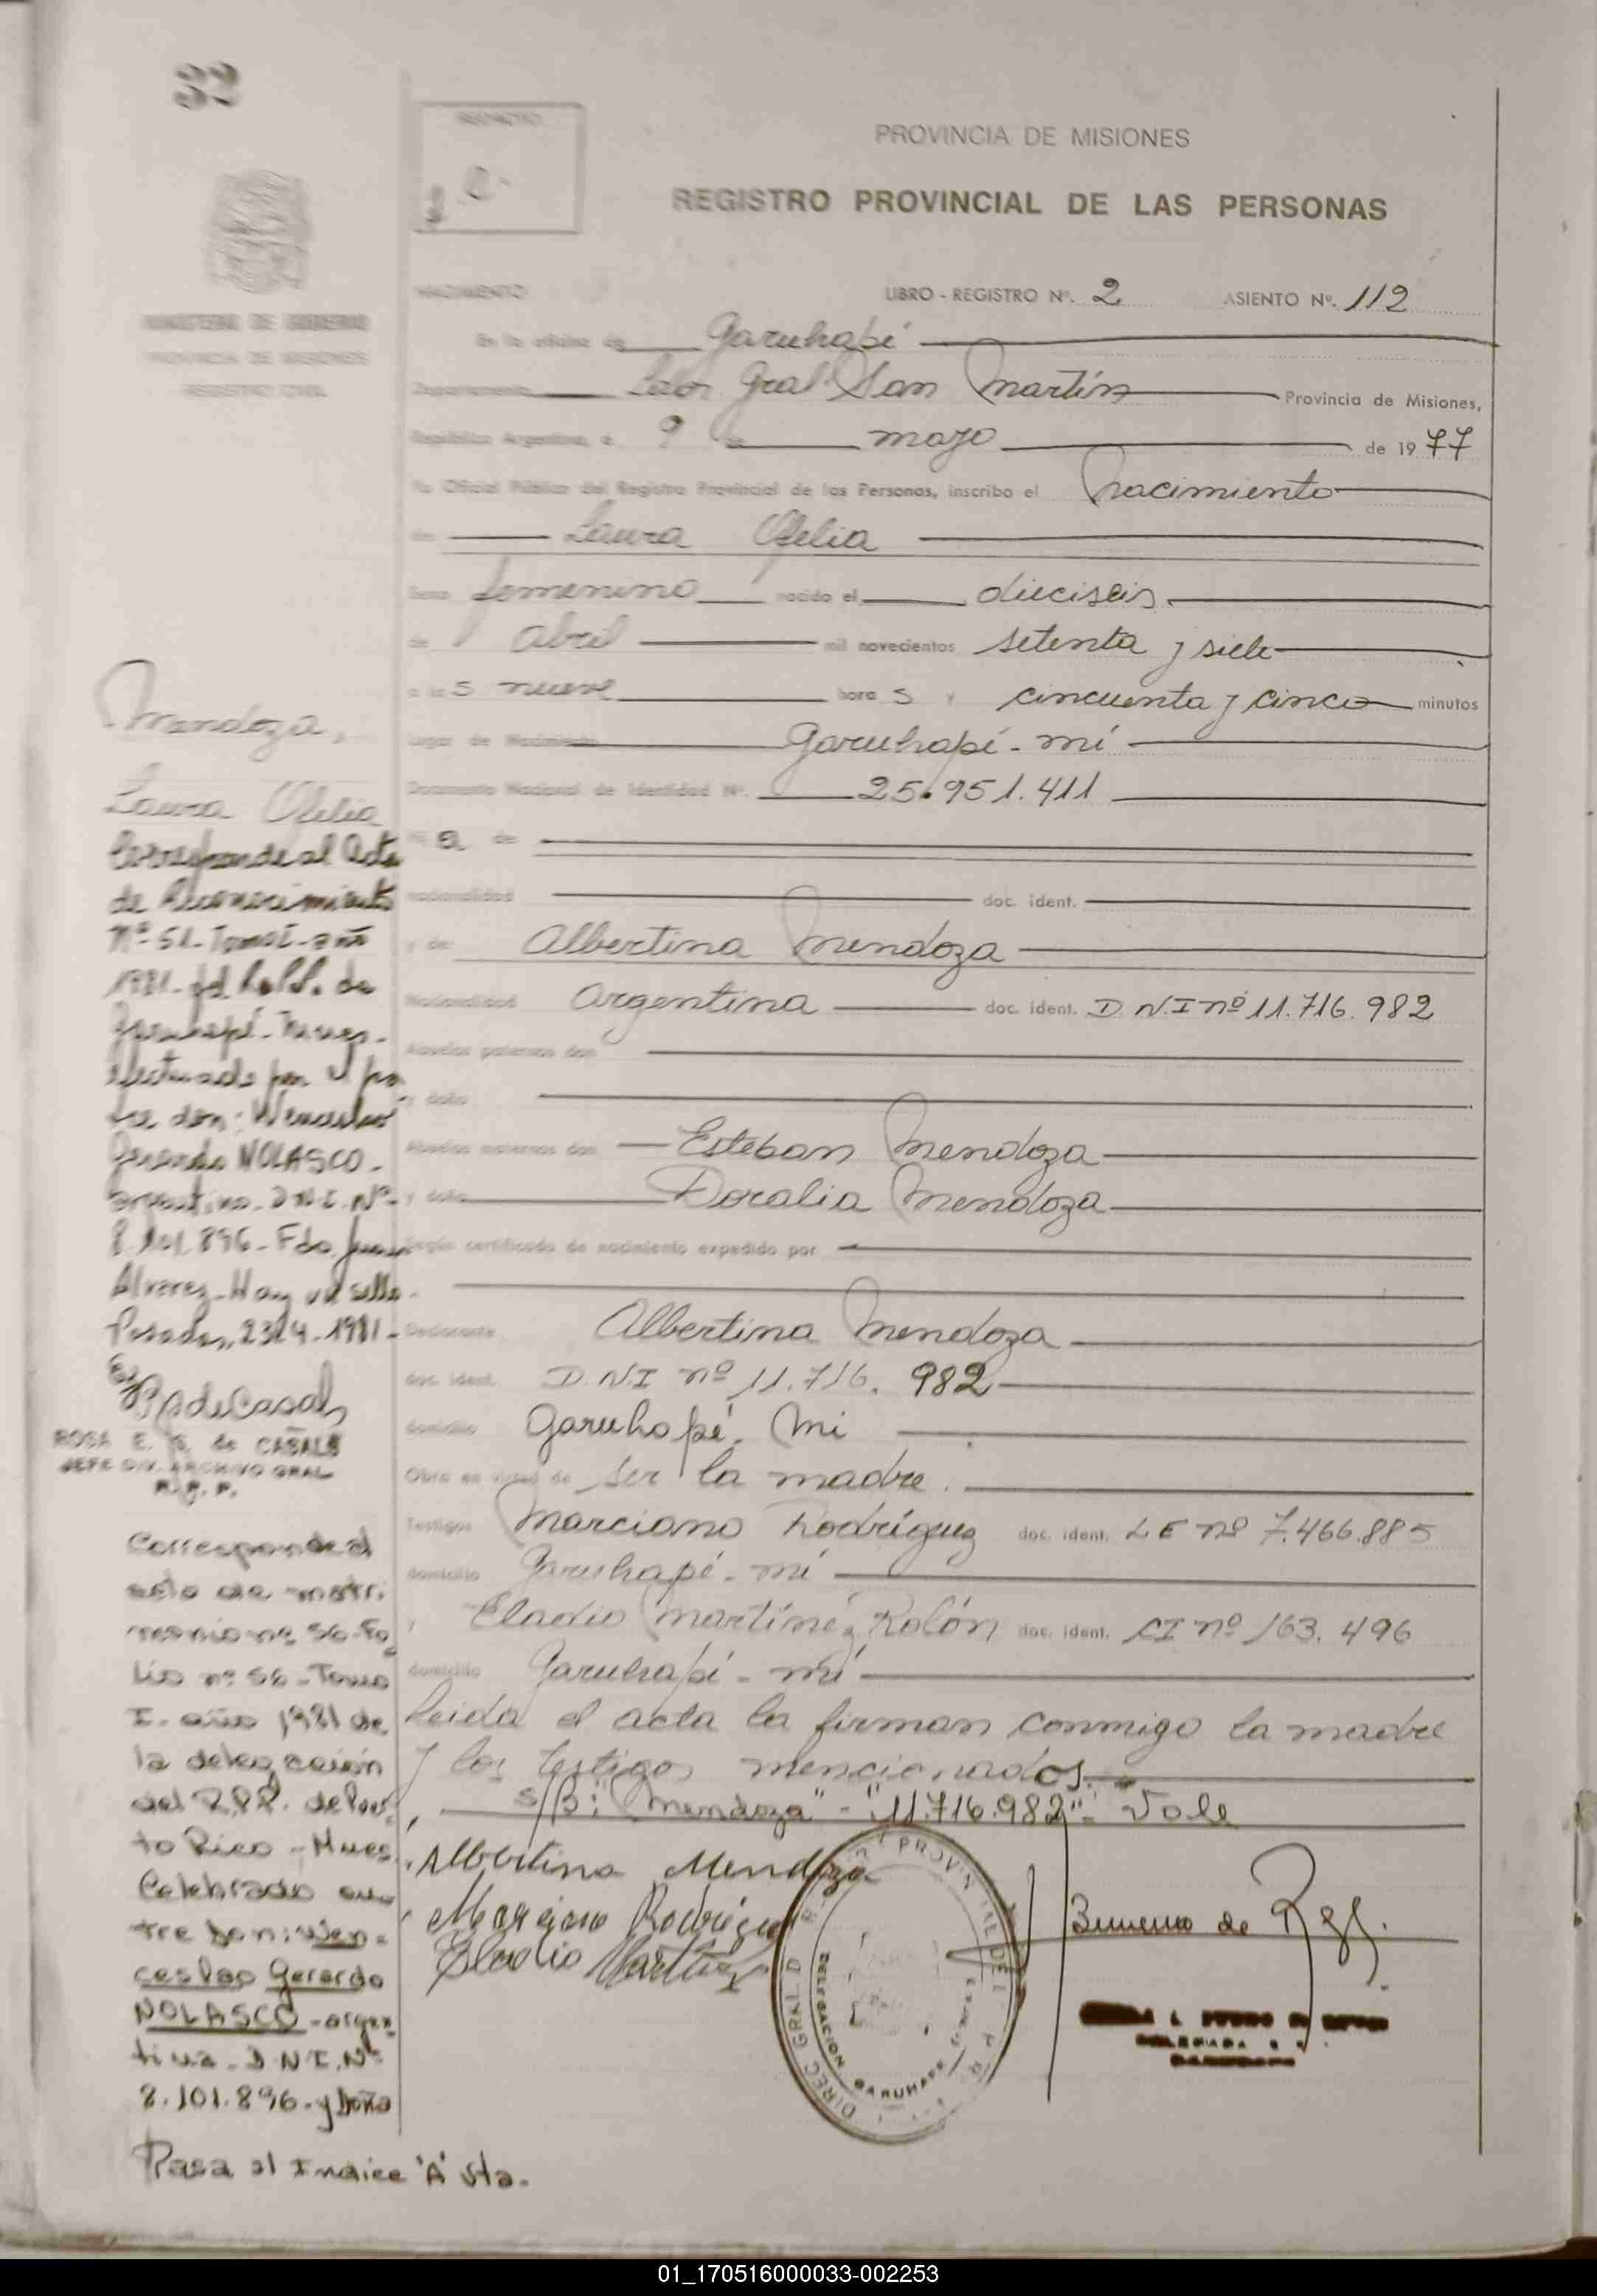 32
IMPUESTO
$ 0.-
PROVINCIA DE MISIONES
REGISTRO PROVINCIAL DE LAS PERSONAS
MINISTERIO DE GOBIERNO
PROVINCIA DE MISIONES
REGISTRO CIVIL
NACIMIENTO LIBRO - REGISTRO Nº. 2 ASIENTO Nº. 112
En la oficina de Garuhapé
Departamento Lbor Gral San Martín Provincia de Misiones,
República Argentina, a 9 de mayo de 1977
Yo Oficial Público del Registro Provincial de las Personas, inscribo el nacimiento
de Laura Ofelia
Sexo femenino nacido el dieciseis
de abril mil novecientos setenta y siete
a las nueve horas y cincuenta y cinco minutos
Lugar de Nacimiento Garuhapé - mí
Documento Nacional de Identidad Nº. 25.951.411
Hija de
nacionalidad doc. ident.
y de Albertina Mendoza
Nacionalidad Argentina doc. ident. D.N.I nº 11.716.982
Abuelos paternos don
y doña
Abuelos maternos don Esteban Mendoza
y doña Doralia Mendoza
Según certificado de nacimiento expedido por
Declarante Albertina Mendoza
doc. ident. D.N.I nº 11.716.982
domicilio Garuhapé. Mi
Obra en virtud de ser la madre.
Testigos Marciano Rodríguez doc. ident. LE nº 7.466.885
domicilio Garuhapé - mí
y Eladio Martínez Rolón doc. ident. CI nº 163.496
domicilio Garuhapé - mí
Leida el acta la firman conmigo la madre
y los testigos mencionados.
S/B: "Mendoza" - "11.716.982" - Vale
Albertina Mendoza
Marciano Rodriguez
Eladio Martinez
DELEGACION GARUHAPE
Mendoza,
Laura Ofelia
Corresponde al Acta
de Reconocimiento
Nº 51 - Tomo I - año
1981 - del R.P.P. de
Garuhapé - Mnes -
efectuado por el pa
dre don: Wenceslao
Gerardo NOLASCO -
argentino. D.N.I. Nº
8.101.896 - Fdo. Juan
Alvarez - Hay un sello.
Posadas, 23/4 - 1981 -
ROSA E. S. de CAÑALS
JEFE DIV. ARCHIVO GRAL
R. P. P.
Corresponde al
acta de matri
monio nº 56 - Fo
lio nº 56 - Tomo
I - año 1981 de
la delegación
del R.P.P. de Puer
to Rico - Mnes.
Celebrado en
tre Don: Wen=
ceslao Gerardo
NOLASCO - argen
tino - D.N.I. Nº
8.101.896 - y Doña
Pasa al Indice "A" Vta.
01_170516000033-002253